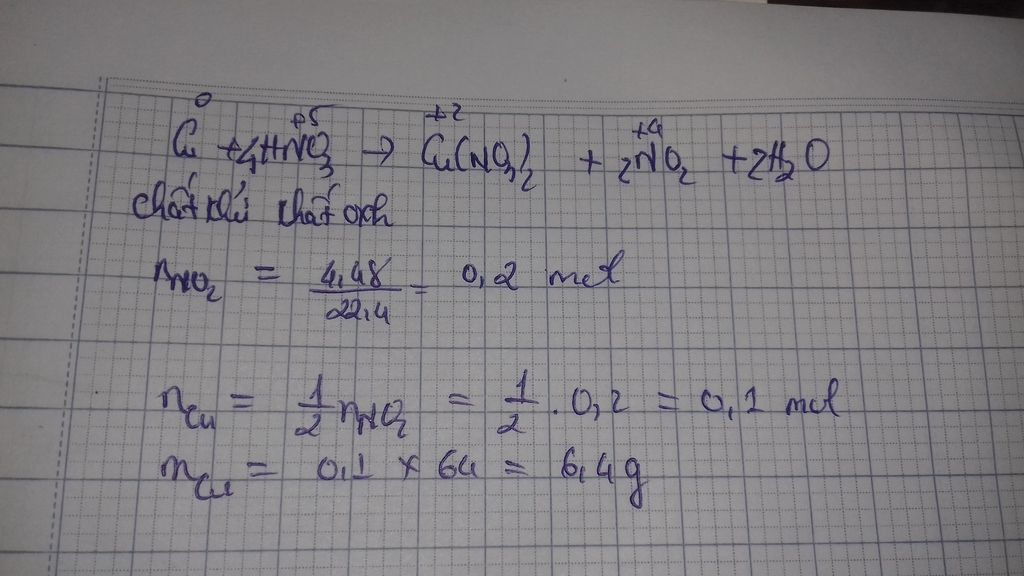 0 +5 +2 +4
Cu + 4HNO3 → Cu(NO3)2 + 2NO2 + 2H2O
chất khử chất oxh
nNO2 = 4,48/22,4 = 0,2 mol
nCu = 1/2 nNO2 = 1/2 . 0,2 = 0,1 mol
mCu = 0,1 × 64 = 6,4g